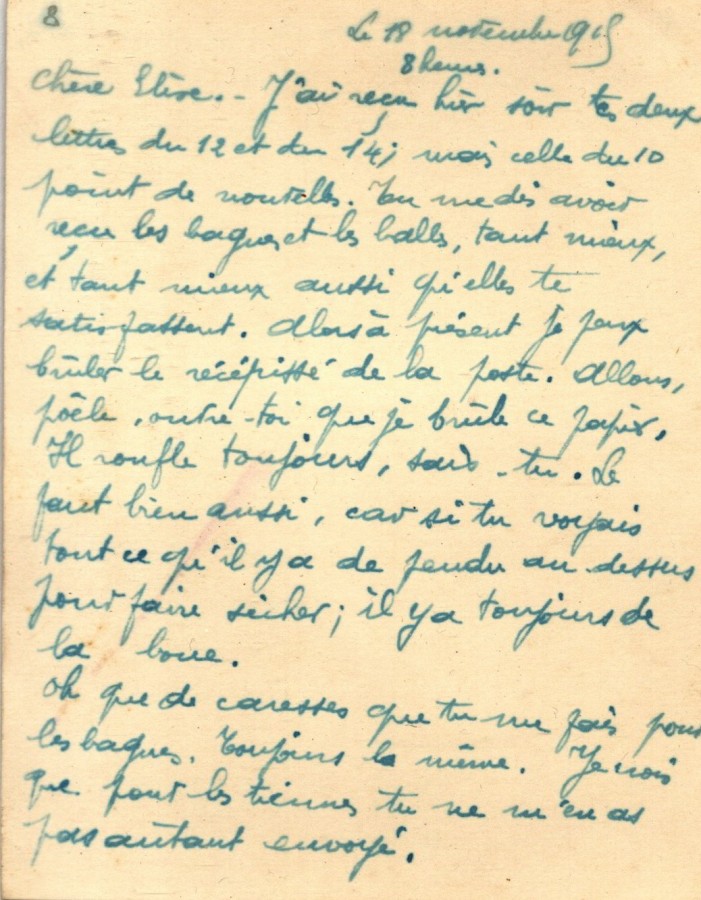 8
Le 18 novembre 1915
8 heures.
Chère Elise. - J'ai reçu hier soir tes deux
lettres du 12 et du 14; mais celle du 10
point de nouvelles. Tu me dis avoir
reçu les bagues et les balles, tant mieux,
et tant mieux aussi qu'elles te
satisfassent. Alors à présent je peux
brûler le récépissé de la poste. Allons,
poêle, ouvre-toi que je brûle ce papier.
Il ronfle toujours, sais-tu. Le
faut bien aussi, car si tu voyais
tout ce qu'il y a de pendu au-dessus
pour faire sécher; il y a toujours de
la boue.
Oh que de caresses que tu me fais pour
les bagues. Toujours la même. Je crois
que pour les tiennes tu ne m'en as
pas autant envoyé.